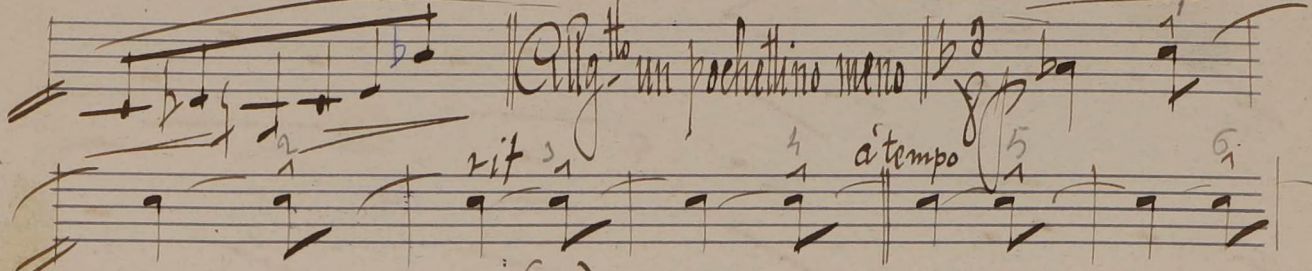 Allg.tto un pochettino meno 1
2 rit 3 4 á tempo 5 6.